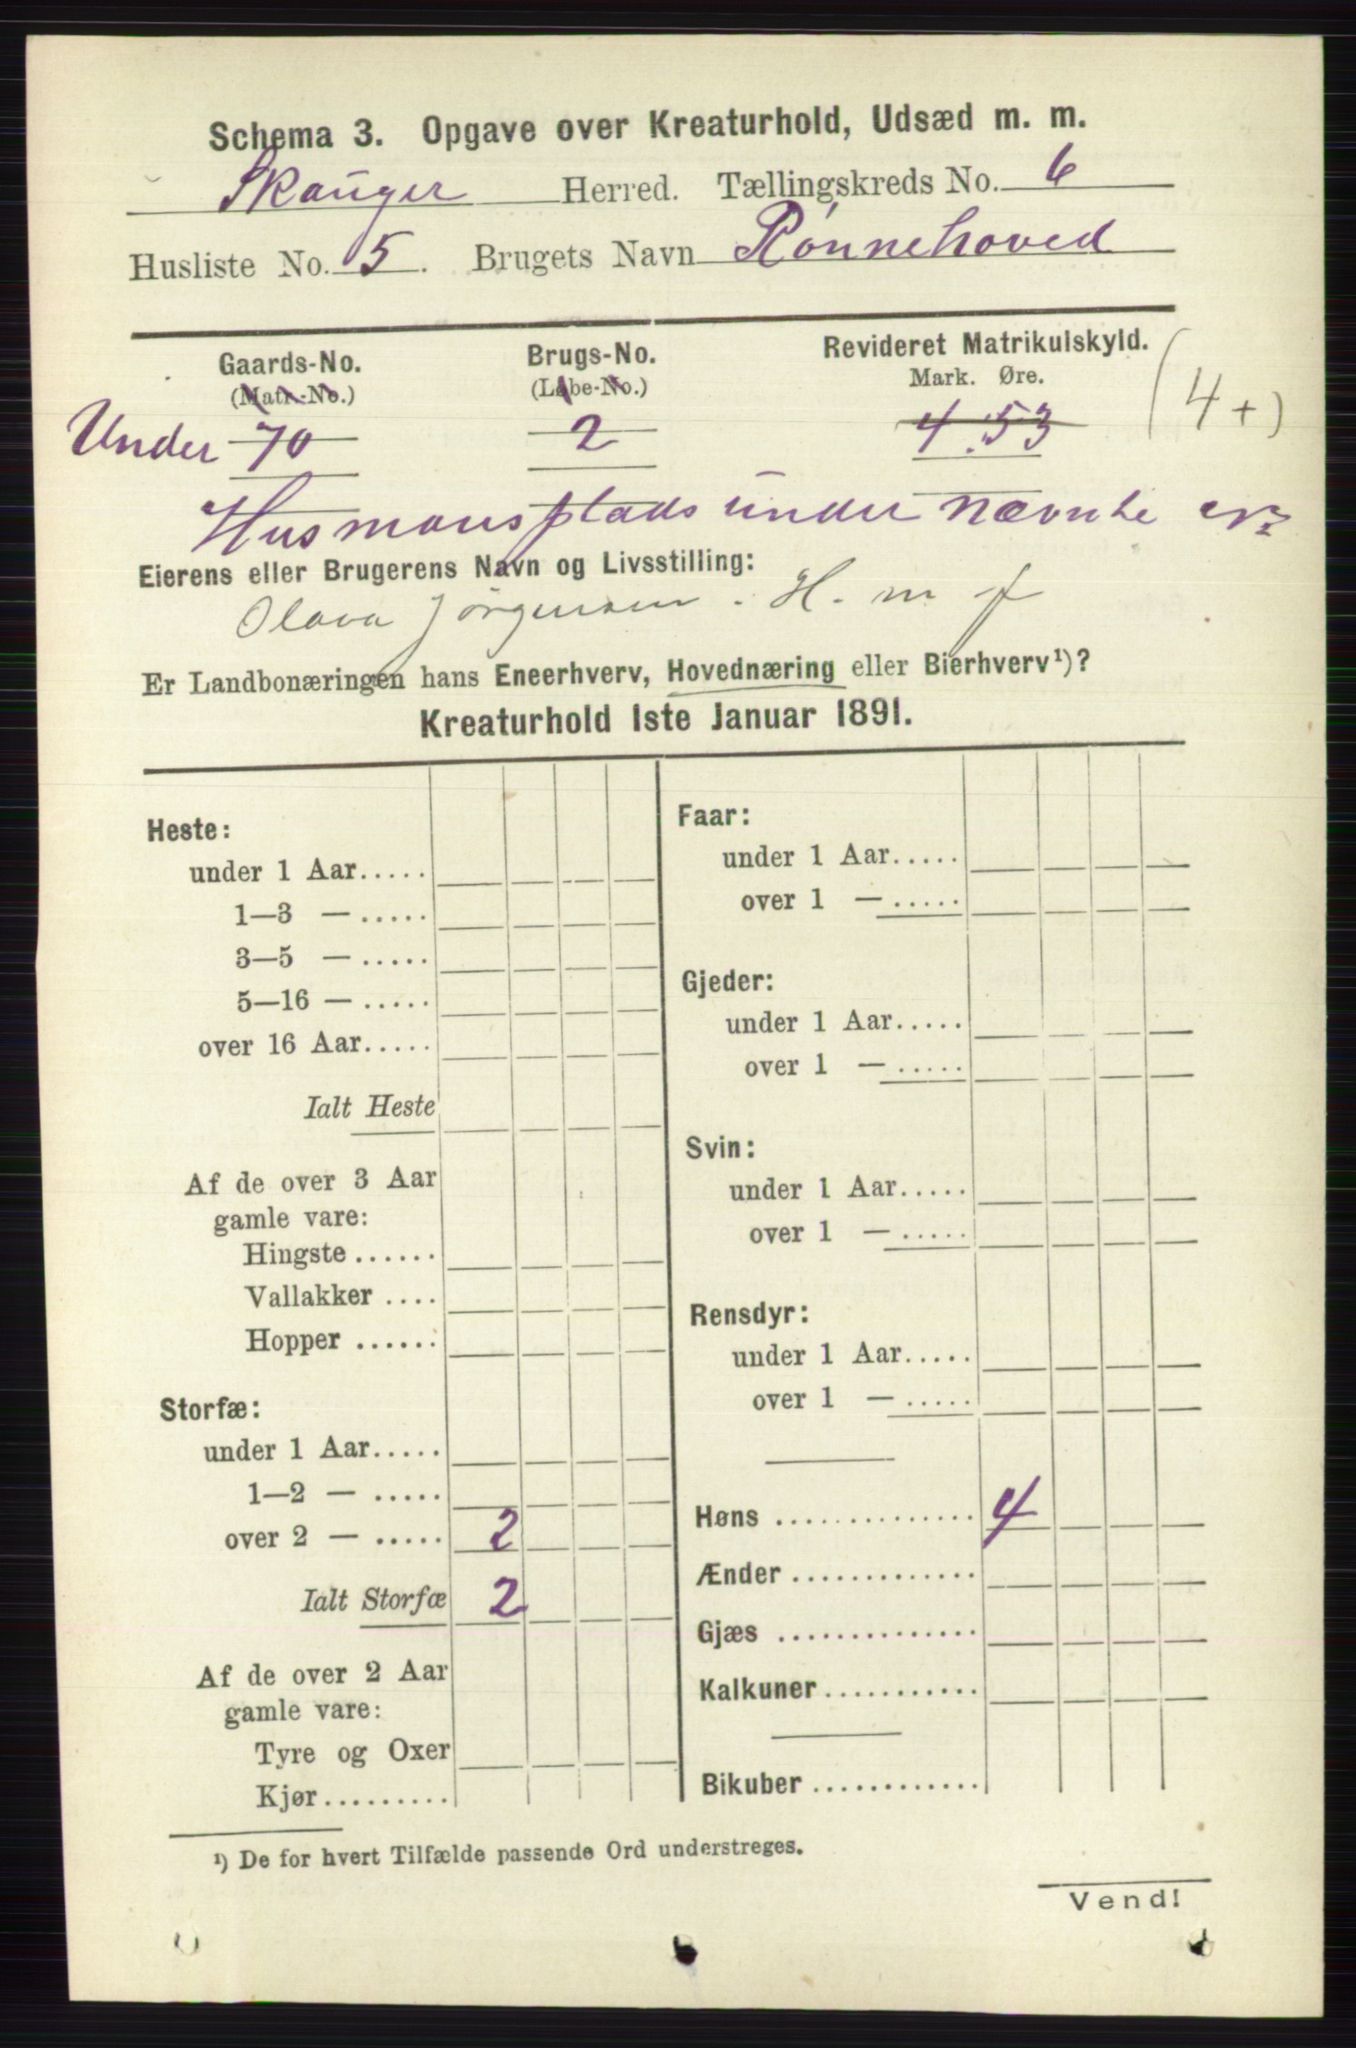 Schema 3. Opgave over Kreaturhold, Udsæd m. m.
Skauger Herred. Tællingskreds No. 6
Husliste No. 5. Brugets Navn Rønnehoved
Gaards-No. Brugs-No. Revideret Matrikulskyld.
(Matr.-No.) (Løbe-No.) Mark. Øre.
Under 70 2 4.53 (4+)
Husmansplads under nævnte
Eierens eller Brugerens Navn og Livsstilling:
Olava Jørgensen. H. m f
Er Landbonæringen hans Eneerhverv, Hovednæring eller Bierhverv¹)?
Kreaturhold 1ste Januar 1891.
Heste:
under 1 Aar.....
1—3 — .....
3—5 — .....
5—16 — .....
over 16 Aar.....
Ialt Heste
Af de over 3 Aar
gamle vare:
Hingste ......
Vallakker ....
Hopper ......
Storfæ:
under 1 Aar.....
1—2 — .....
over 2 — ..... 2
Ialt Storfæ 2
Af de over 2 Aar
gamle vare:
Tyre og Oxer
Kjør.........
Faar:
under 1 Aar.....
over 1 — .....
Gjeder:
under 1 Aar.....
over 1 — .....
Svin:
under 1 Aar.....
over 1 — .....
Rensdyr:
under 1 Aar.....
over 1 — .....
Høns .............. 4
Ænder .............
Gjæs ..............
Kalkuner...........
Bikuber ............
¹) De for hvert Tilfælde passende Ord understreges.
Vend!